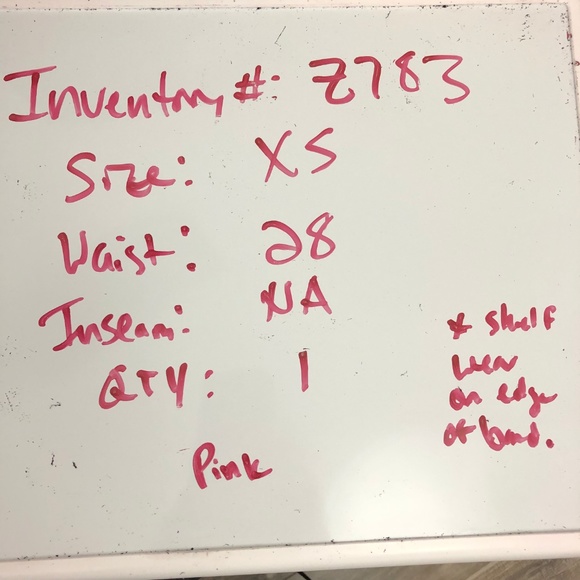 Inventory #: Z783
Size: XS
Waist: 28
Inseam: NA
QTY: 1
Pink
* Shelf
wear
on edge
of band.